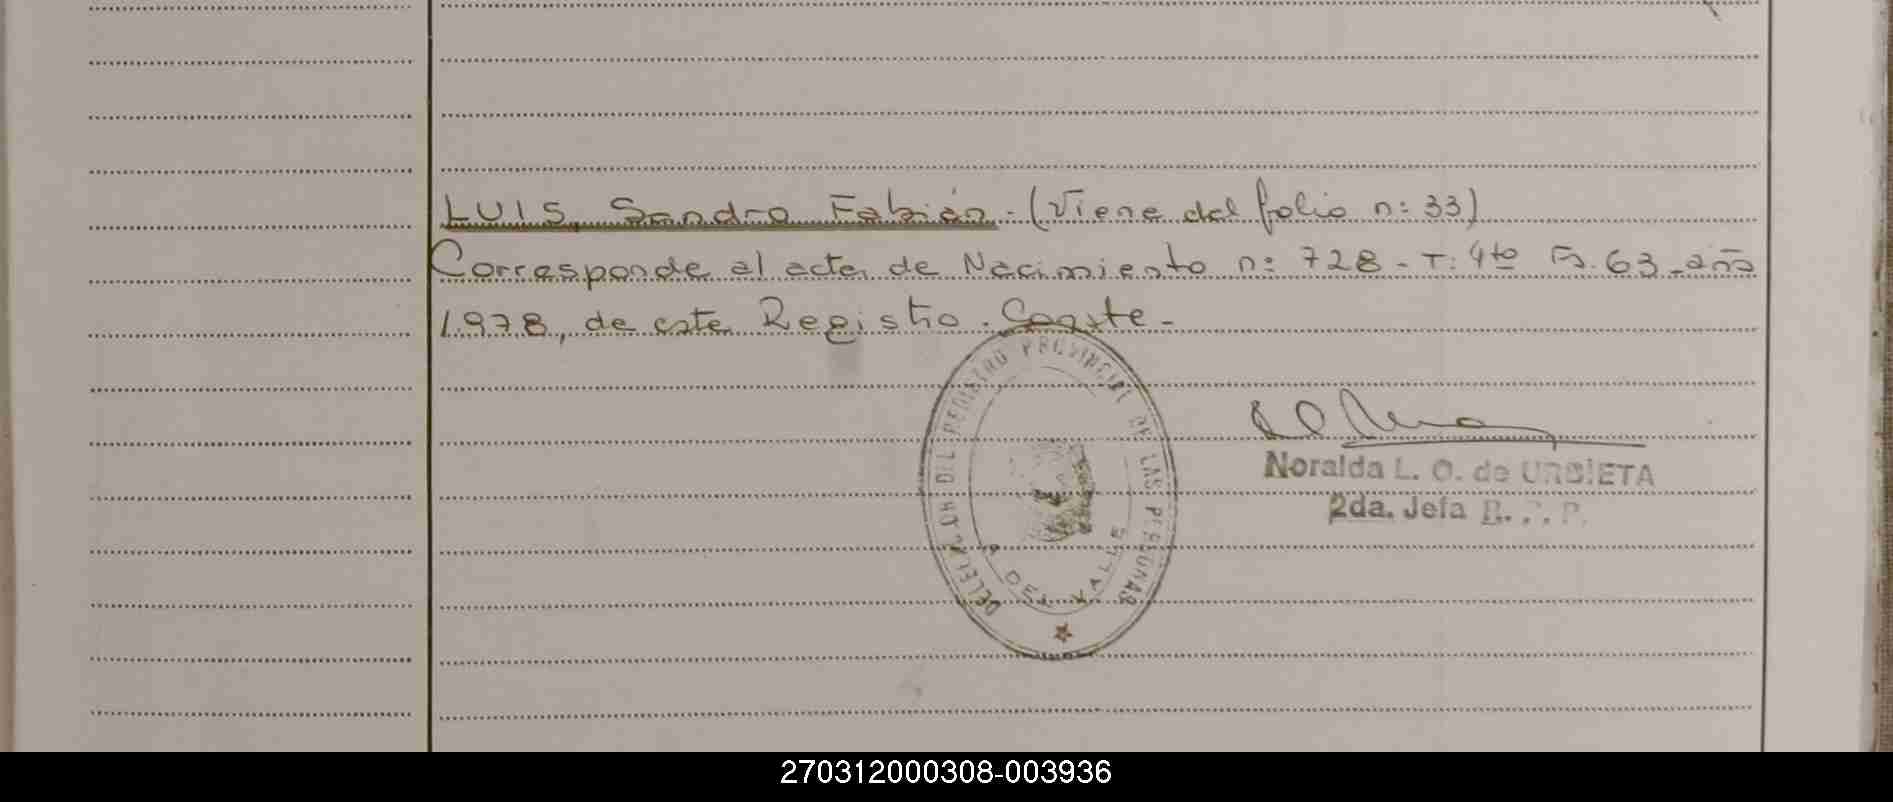 LUIS, Sandro Fabián.- (Viene del folio n: 33)
Corresponde al acta de Nacimiento n: 728 - T: 4to Fo. 63 - año
1.978, de este Registro. Conste -
DELEGACION DEL REGISTRO PROVINCIAL DE LAS PERSONAS
DEL VALLE
Noralda L. O. de URBIETA
2da. Jefa R. P.
270312000308-003936